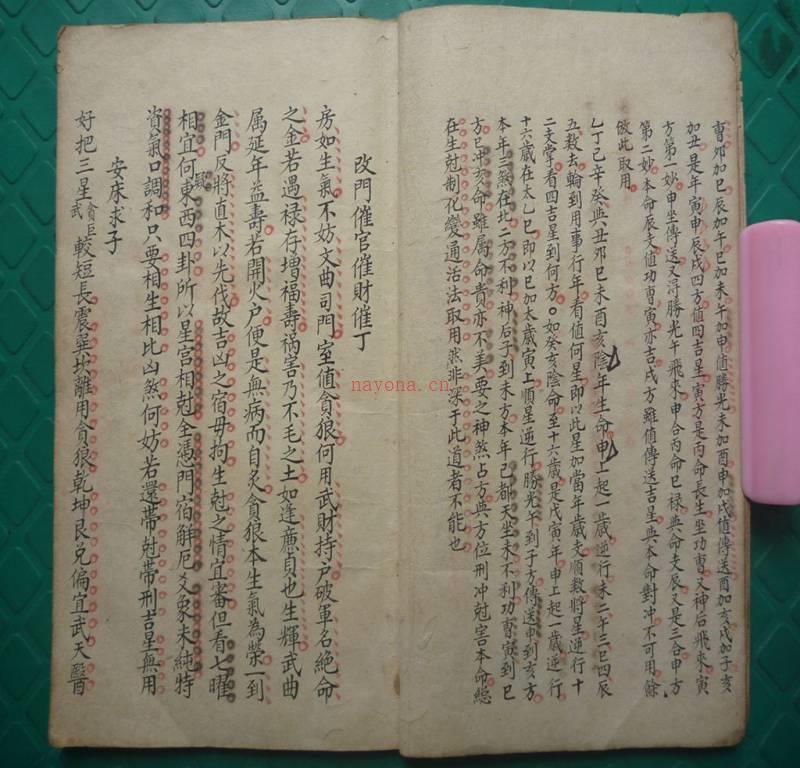 曹卯加巳辰加午巳加未午加申值勝光未加酉申加戌值傳送酉加亥戌加子亥
加丑是年寅申辰戌四方值四吉星寅方是丙命長生坐功曹又神后飛來寅
方第一妙申坐傳送又淂勝光午飛來申合丙命巳禄與命支辰又是三合申方
第二妙本命辰支值功曹寅亦吉戌方雖值傳送吉星與本命對冲不可用餘
倣此取用
乙丁己辛癸與丑卯巳未酉亥陰年生命申上起一歲逆行未二午三巳四辰
五数去輪到用事行年看值何星即以此星加當年歲支順数將星逆行十
二支掌看四吉星到何方○如癸亥陰命至十六歲是戊寅年申上起一歲逆行
十六歲在太乙巳即以巳加太歲寅上順星逆行勝光午到子方傳送申到亥方
本年三煞在北二方不利神后子到未方本年己都天坐未不利功曹寅到巳
方巳冲亥命雖属命貴亦不美要之神煞占方與方位刑冲尅害本命總
在生尅制化變通活法取用然非深于此道者不能也
改門催官催財催丁
房如生氣不妨文曲司門室值貪狼何用武財持户破軍名絶命
之金若遇禄存增福壽禍害乃不毛之土如逢廉貞也生輝武曲
属延年益壽若開火户便是無病而自炙貪狼本生氣為榮一到
金門反將直木以先伐故吉凶之宿毋拘生尅之情宜審但看七曜
相宜何東西四卦所以星宫相尅全憑門宿觧厄爻象未純特
資氣口調和只要相生相比凶煞何妨若還帶尅帶刑吉星無用
安床求子
好把三星貪巨武較短長震巽坎離用貪狼乾坤艮兑偏宜武天醫
nayona.cn